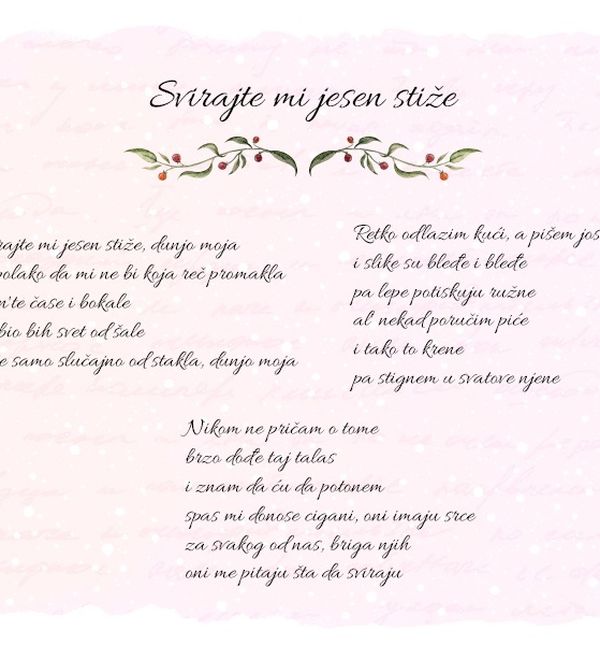 Svirajte mi jesen stiže
rajte mi jesen stiže, dunjo moja
polako da mi ne bi koja reč promakla
n'te čase i bokale
bio bih svet od šale
e samo slučajno od stakla, dunjo moja
Retko odlazim kući, a pišem jos
i slike su bleđe i bleđe
pa lepe potiskuju ružne
al' nekad poručim piće
i tako to krene
pa stignem u svatove njene
Nikom ne pričam o tome
brzo dođe taj talas
i znam da ću da potonem
spas mi donose cigani, oni imaju srce
za svakog od nas, briga njih
oni me pitaju šta da sviraju